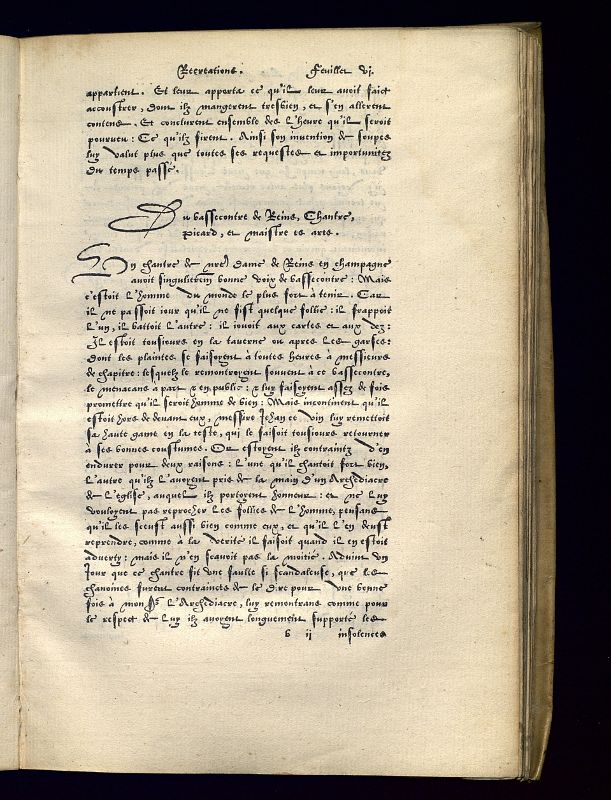 Recreations. Feuillet vj.
appartient. Et leur apporta ce qu'il leur avoit faict
accoustrer, dont ilz mangerent tresbien, et s'en allerent
contens. Et conclurent ensemble des l'heure qu'il seroit
pourveu: Ce qu'ilz firent. Ainsi son invention de soupes
luy valut plus que toutes ses requestes et importunitez
du temps passé.
Du bassecontre de Reins, Chantre,
picard, et maistre es arts.
Un chantre de nre Dame de Reins en champagne
avoit singulierem̃ bonne voix de bassecontre: Mais
c'estoit l'homme du monde le plus fort à tenir. Car
il ne passoit iour qu'il ne fist quelque follie: il frappoit
l'un, il battoit l'autre: il iouoit aux cartes et aux dez:
Il estoit tousiours en la taverne ou apres les garses:
dont les plaintes se faisoyent à toutes heures à messieurs
de chapitre: lesquelz le remonstroyent souvent à ce bassecontre,
le menacans a part & en public: & luy faisoyent assez de fois
promettre qu'il seroit homme de bien: Mais incontinent qu'il
estoit hors de devant eux, messire Jehan ce vin luy remettoit
sa haute game en la teste, qui le faisoit tousiours retourner
à ses bonnes coustumes. Or estoyent ilz contraintz d'en
endurer pour deux raisons: l'une qu'il chantoit fort bien,
l'autre qu'ilz l'avoyent pris de la main d'un Archediacre
de l'eglise, auquel ilz portoyent honneur: et ne luy
vouloyent pas reprocher les follies de l'homme, pensans
qu'il les sceust aussi bien comme eux, et qu'il l'en deust
reprendre, comme à la verité il faisoit quand il en estoit
adverty: mais il n'en scavoit pas la moitié. Advint un
jour que ce chantre fit une faulte si scandaleuse, que les
chanoines furent contraincts de le dire pour une bonne
fois à mon Sr l'Archediacre, luy remontrans comme pour
le respect de luy ilz avoyent longuement supporté les
b ij insolences